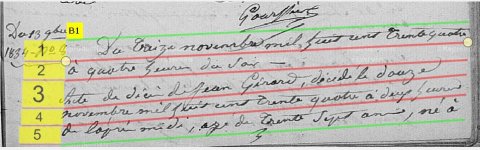 Gourssiet
Du 13 9bre B1
1834 - No 9 1 Du Treize novembre mil huit cent trente quatre
2 à quatre heures du soir —
3 Acte de décè de Jean Girard, décédé le douze
4 novembre mil huit cent trente quatre à deux heures
5 de laprès midi, agé de trente sept ans, né à